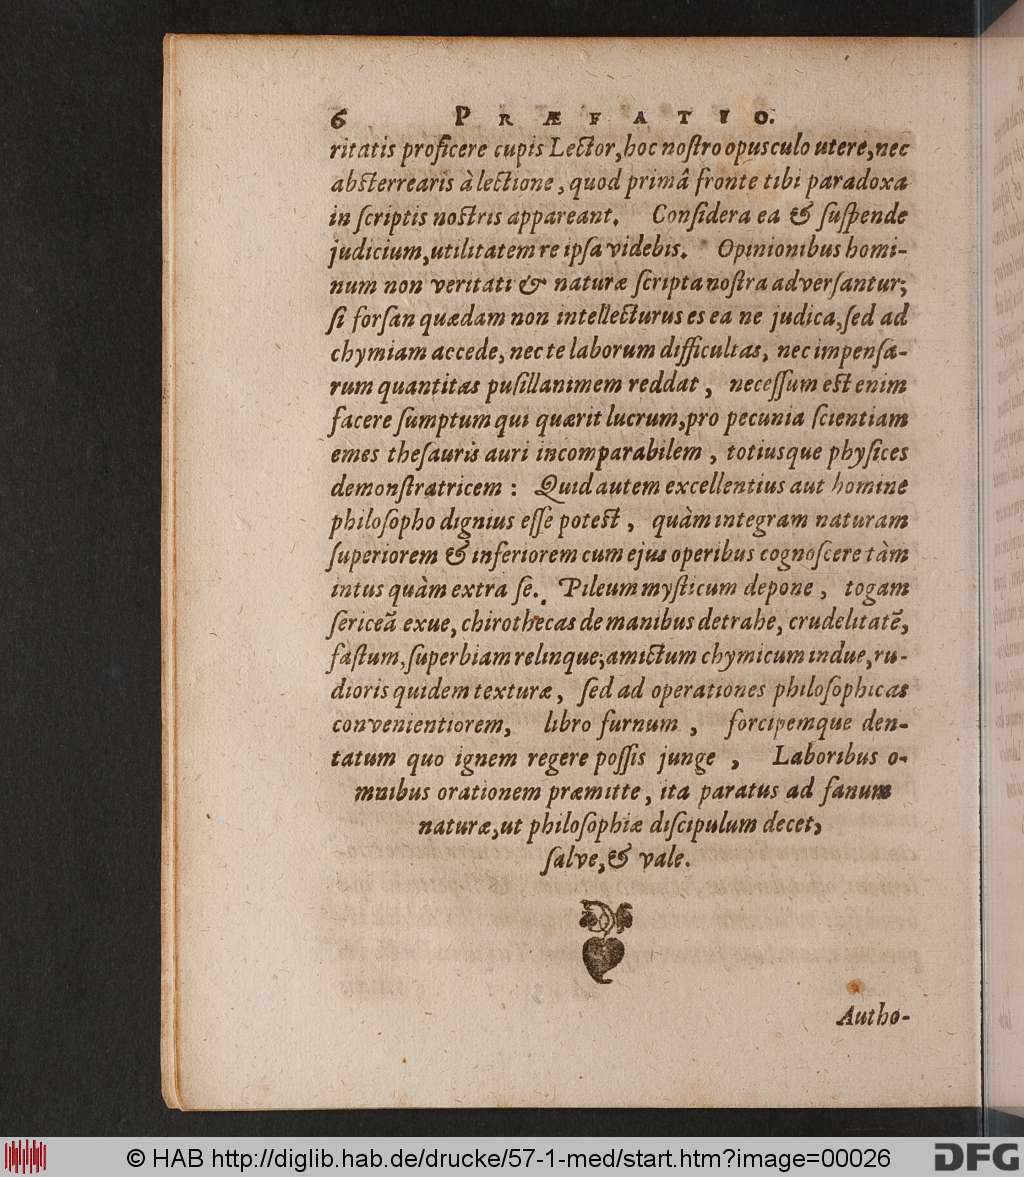 6 PRÆFATIO.
ritatis proficere cupis Lector, hoc noſtro opusculo utere, nec
abſterrearis à lectione, quod primâ fronte tibi paradoxa
in ſcriptis noſtris appareant. Conſidera ea & ſuſpende
judicium, utilitatem re ipſa videbis. Opinionibus homi-
num non veritati & naturæ ſcripta noſtra adverſantur;
ſi forſan quædam non intellecturus es ea ne judica, ſed ad
chymiam accede, nec te laborum difficultas, nec impenſa-
rum quantitas puſillanimem reddat, neceſſum eſt enim
facere ſumptum qui quærit lucrum, pro pecunia ſcientiam
emes theſauris auri incomparabilem, totiusque phyſices
demonſtratricem: Quid autem excellentius aut homine
philoſopho dignius eſſe poteſt, quàm integram naturam
ſuperiorem & inferiorem cum ejus operibus cognoſcere tàm
intus quàm extra ſe. Pileum myſticum depone, togam
ſericeã exue, chirothecas de manibus detrahe, crudelitatẽ,
faſtum, ſuperbiam relinque; amictum chymicum indue, ru-
dioris quidem texturæ, ſed ad operationes philoſophicas
convenientiorem, libro furnum, forcipemque den-
tatum quo ignem regere poſſis junge, Laboribus o-
mnibus orationem præmitte, ita paratus ad fanum
naturæ, ut philoſophiæ diſcipulum decet,
ſalve, & vale.
Autho-
© HAB http://diglib.hab.de/drucke/57-1-med/start.htm?image=00026
DFG